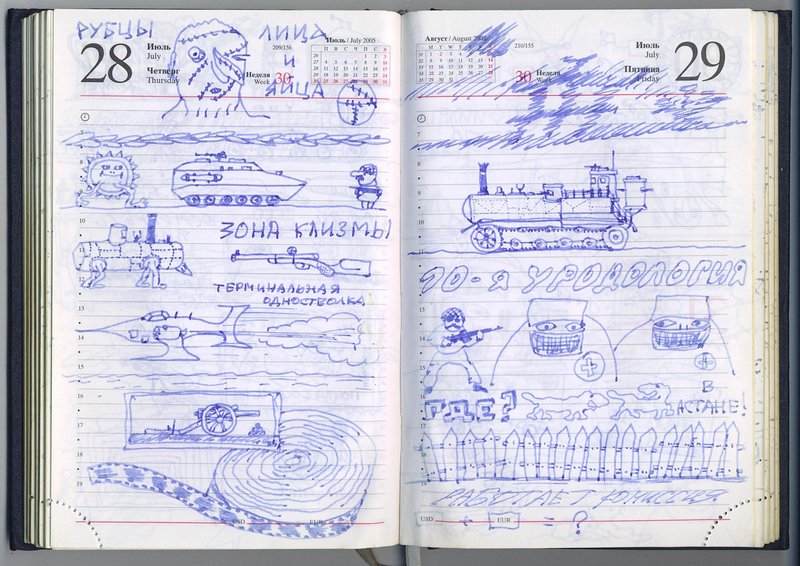 РУБЦЫ ЛИЦА
И
ЯИЦА
28
Июль
July
Четверг
Thursday
209/156
Неделя
Week
30
Июль / July 2005
7
8
9
10
ЗОНА КЛИЗМЫ
11
12
ТЕРМИНАЛЬНАЯ
ОДНОСТВОЛКА
13
14
15
16
17
18
19
USD
EUR
Август / August 2005
210/155
30
Неделя
Week
Июль
July
Пятница
Friday
29
7
8
9
10
11
90-Я УРОДОЛОГИЯ
12
13
14
15
ГДЕ?
В
АСТАНЕ!
16
17
18
19
USD + EUR = ?